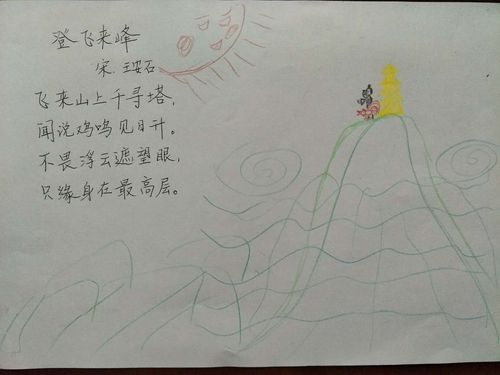 登飞来峰
宋.王安石
飞来山上千寻塔,
闻说鸡鸣见日升。
不畏浮云遮望眼,
只缘身在最高层。